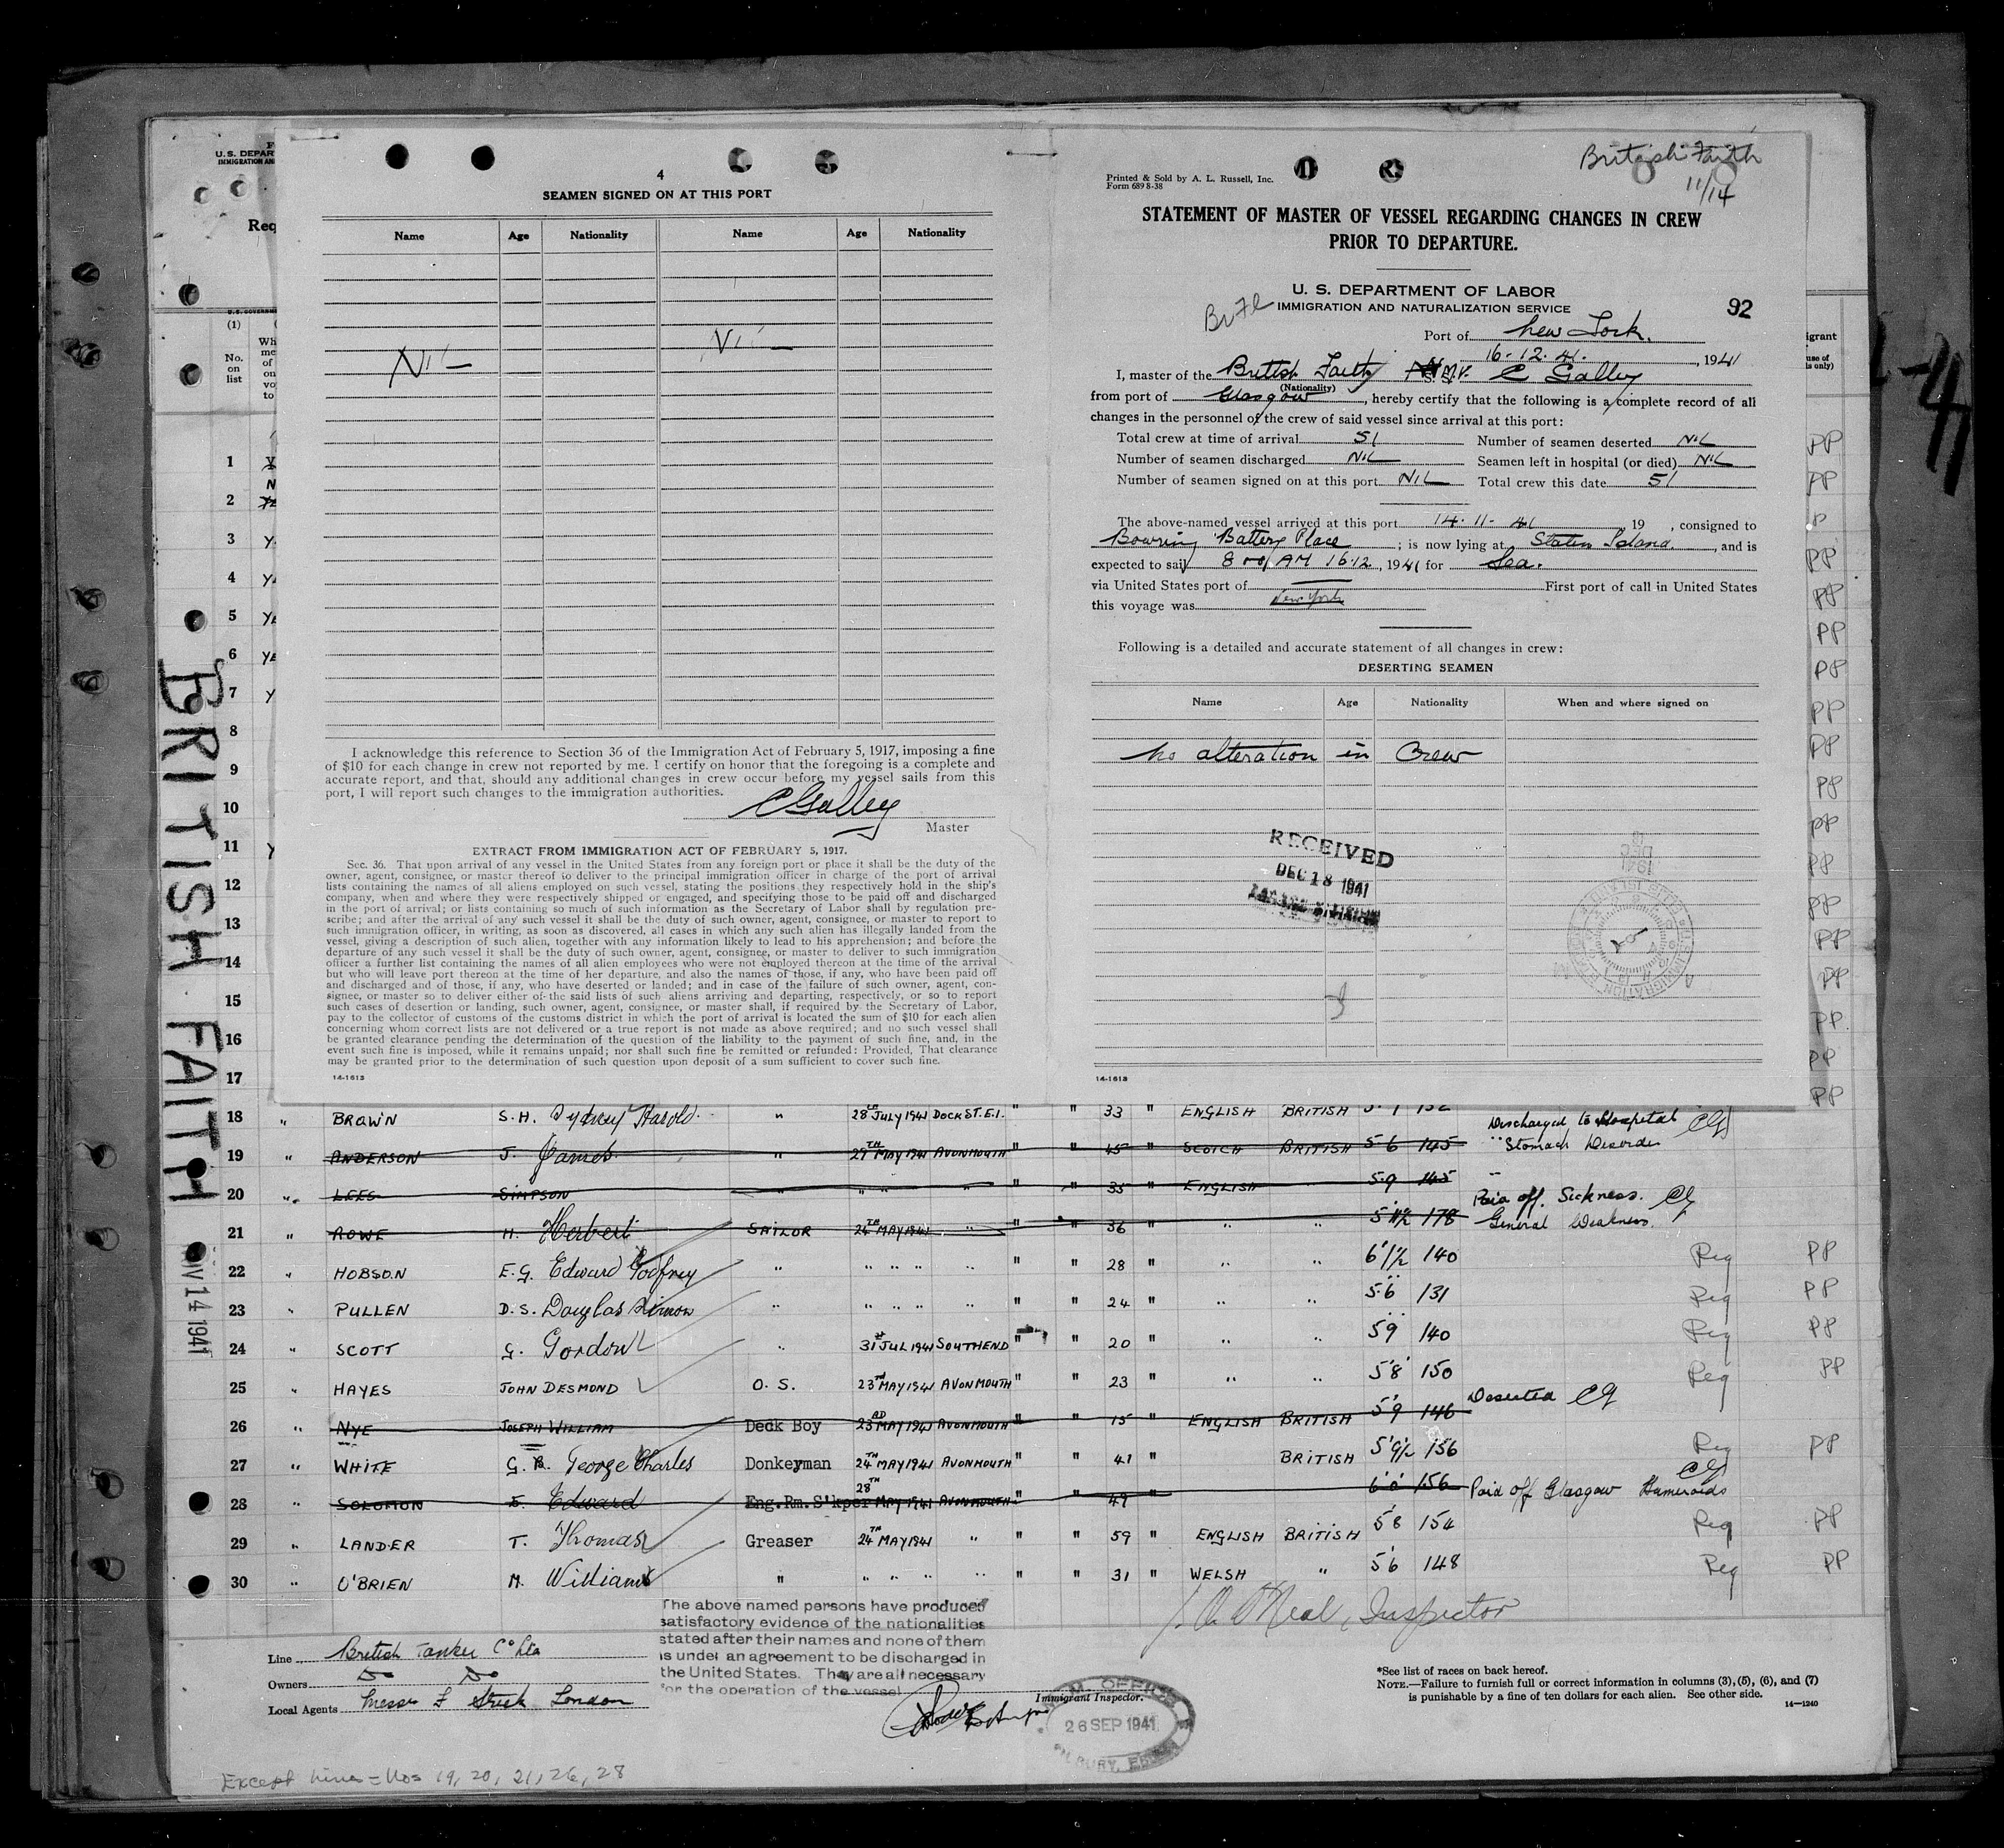 U. S. DEPAR
IMMIGRATION AN
Req
(1)
No.
on
list
4
SEAMEN SIGNED ON AT THIS PORT
Name Age Nationality Name Age Nationality
Nil Nil
I acknowledge this reference to Section 36 of the Immigration Act of February 5, 1917, imposing a fine
of $10 for each change in crew not reported by me. I certify on honor that the foregoing is a complete and
accurate report, and that, should any additional changes in crew occur before my vessel sails from this
port, I will report such changes to the immigration authorities.
C Galley
Master
EXTRACT FROM IMMIGRATION ACT OF FEBRUARY 5, 1917.
Sec. 36. That upon arrival of any vessel in the United States from any foreign port or place it shall be the duty of the
owner, agent, consignee, or master thereof to deliver to the principal immigration officer in charge of the port of arrival
lists containing the names of all aliens employed on such vessel, stating the positions they respectively hold in the ship's
company, when and where they were respectively shipped or engaged, and specifying those to be paid off and discharged
in the port of arrival; or lists containing so much of such information as the Secretary of Labor shall by regulation pre-
scribe; and after the arrival of any such vessel it shall be the duty of such owner, agent, consignee, or master to report to
such immigration officer, in writing, as soon as discovered, all cases in which any such alien has illegally landed from the
vessel, giving a description of such alien, together with any information likely to lead to his apprehension; and before the
departure of any such vessel it shall be the duty of such owner, agent, consignee, or master to deliver to such immigration
officer a further list containing the names of all alien employees who were not employed thereon at the time of the arrival
but who will leave port thereon at the time of her departure, and also the names of those, if any, who have been paid off
and discharged and of those, if any, who have deserted or landed; and in case of the failure of such owner, agent, con-
signee, or master so to deliver either of the said lists of such aliens arriving and departing, respectively, or so to report
such cases of desertion or landing, such owner, agent, consignee, or master shall, if required by the Secretary of Labor,
pay to the collector of customs of the customs district in which the port of arrival is located the sum of $10 for each alien
concerning whom correct lists are not delivered or a true report is not made as above required; and no such vessel shall
be granted clearance pending the determination of the question of the liability to the payment of such fine, and, in the
event such fine is imposed, while it remains unpaid; nor shall such fine be remitted or refunded: Provided, That clearance
may be granted prior to the determination of such question upon deposit of a sum sufficient to cover such fine.
14-1613
British Faith
11/14
Printed & Sold by A. L. Russell, Inc.
Form 689 8-38
STATEMENT OF MASTER OF VESSEL REGARDING CHANGES IN CREW
PRIOR TO DEPARTURE.
U. S. DEPARTMENT OF LABOR
IMMIGRATION AND NATURALIZATION SERVICE
92
Port of New York.
16-12-41. , 1941
I, master of the British Faith M.V. C Galley
(Nationality)
from port of Glasgow , hereby certify that the following is a complete record of all
changes in the personnel of the crew of said vessel since arrival at this port:
Total crew at time of arrival 51 Number of seamen deserted NIL
Number of seamen discharged NIL Seamen left in hospital (or died) NIL
Number of seamen signed on at this port NIL Total crew this date 51
The above-named vessel arrived at this port 14-11-41 , 19 , consigned to
Bowring Battery Place ; is now lying at Staten Island. , and is
expected to sail 8 AM 16-12 , 1941 for Sea.
via United States port of First port of call in United States
this voyage was New York
Following is a detailed and accurate statement of all changes in crew:
DESERTING SEAMEN
Name Age Nationality When and where signed on
No alteration in Crew
RECEIVED
DEC 18 1941
14-1613
BRITISH FAITH
NOV 14 1941
1
2
3
4
5
6
7
8
9
10
11
12
13
14
15
16
17
18 " BROWN S.H. Sydney Harold " 28 JULY 1941 DOCK ST. E.1. " " 33 " ENGLISH BRITISH
Discharged to Hospital CG
19 " ANDERSON J. James " 29TH MAY 1941 AVONMOUTH " " 45 " SCOTCH BRITISH 5-6 145 Stomach Disorder
20 " LEES SIMPSON " " " " " " 35 " ENGLISH " 5-9 145
Paid off. Sickness. CG
21 " ROWE H. Herbert SAILOR 24TH MAY 1941 " " " 36 " " " 5 11½ 178 General Weakness.
22 " HOBSON E.G. Edward Godfrey " " " " " " " 28 " " " 6'1½ 140 Reg PP
23 " PULLEN D.S. Douglas Simon " " " " " " " 24 " " " 5·6 131 Reg PP
24 " SCOTT G. Gordon " 31ST JUL 1941 SOUTHEND " " 20 " " " 5 9 140 Reg PP
25 " HAYES JOHN DESMOND O.S. 23RD MAY 1941 AVONMOUTH " " 23 " " " 5'8 150 Reg PP
26 " NYE JOSEPH WILLIAM Deck Boy 23RD MAY 1941 AVONMOUTH " " 15 " ENGLISH BRITISH 5'9 146 Deserted CG
27 " WHITE G. George Charles Donkeyman 24TH MAY 1941 AVONMOUTH " " 41 " BRITISH 5'9½ 156 Reg PP
28 " SOLOMON E. Edward Eng.Rm.S'kper 28TH MAY 1941 AVONMOUTH " " 49 " 6'0 156 Paid off Glasgow Hameroids CG
29 " LANDER T. Thomas Greaser 24TH MAY 1941 " " " 59 " ENGLISH BRITISH 5'8 154 Reg PP
30 " O'BRIEN W. William " " " " " " " 31 " WELSH " 5'6 148 Reg PP
The above named persons have produced
satisfactory evidence of the nationalities
stated after their names and none of them
is under an agreement to be discharged in
the United States. They are all necessary
for the operation of the vessel
Inspector
Line British Tanker Co Ltd
Owners Do Do
Local Agents Messrs F Strick London
Immigrant Inspector.
26 SEP 1941
TILBURY, ESSEX
*See list of races on back hereof.
NOTE.—Failure to furnish full or correct information in columns (3), (5), (6), and (7)
is punishable by a fine of ten dollars for each alien. See other side.
14—1240
Except lines = Nos 19, 20, 21, 26, 28